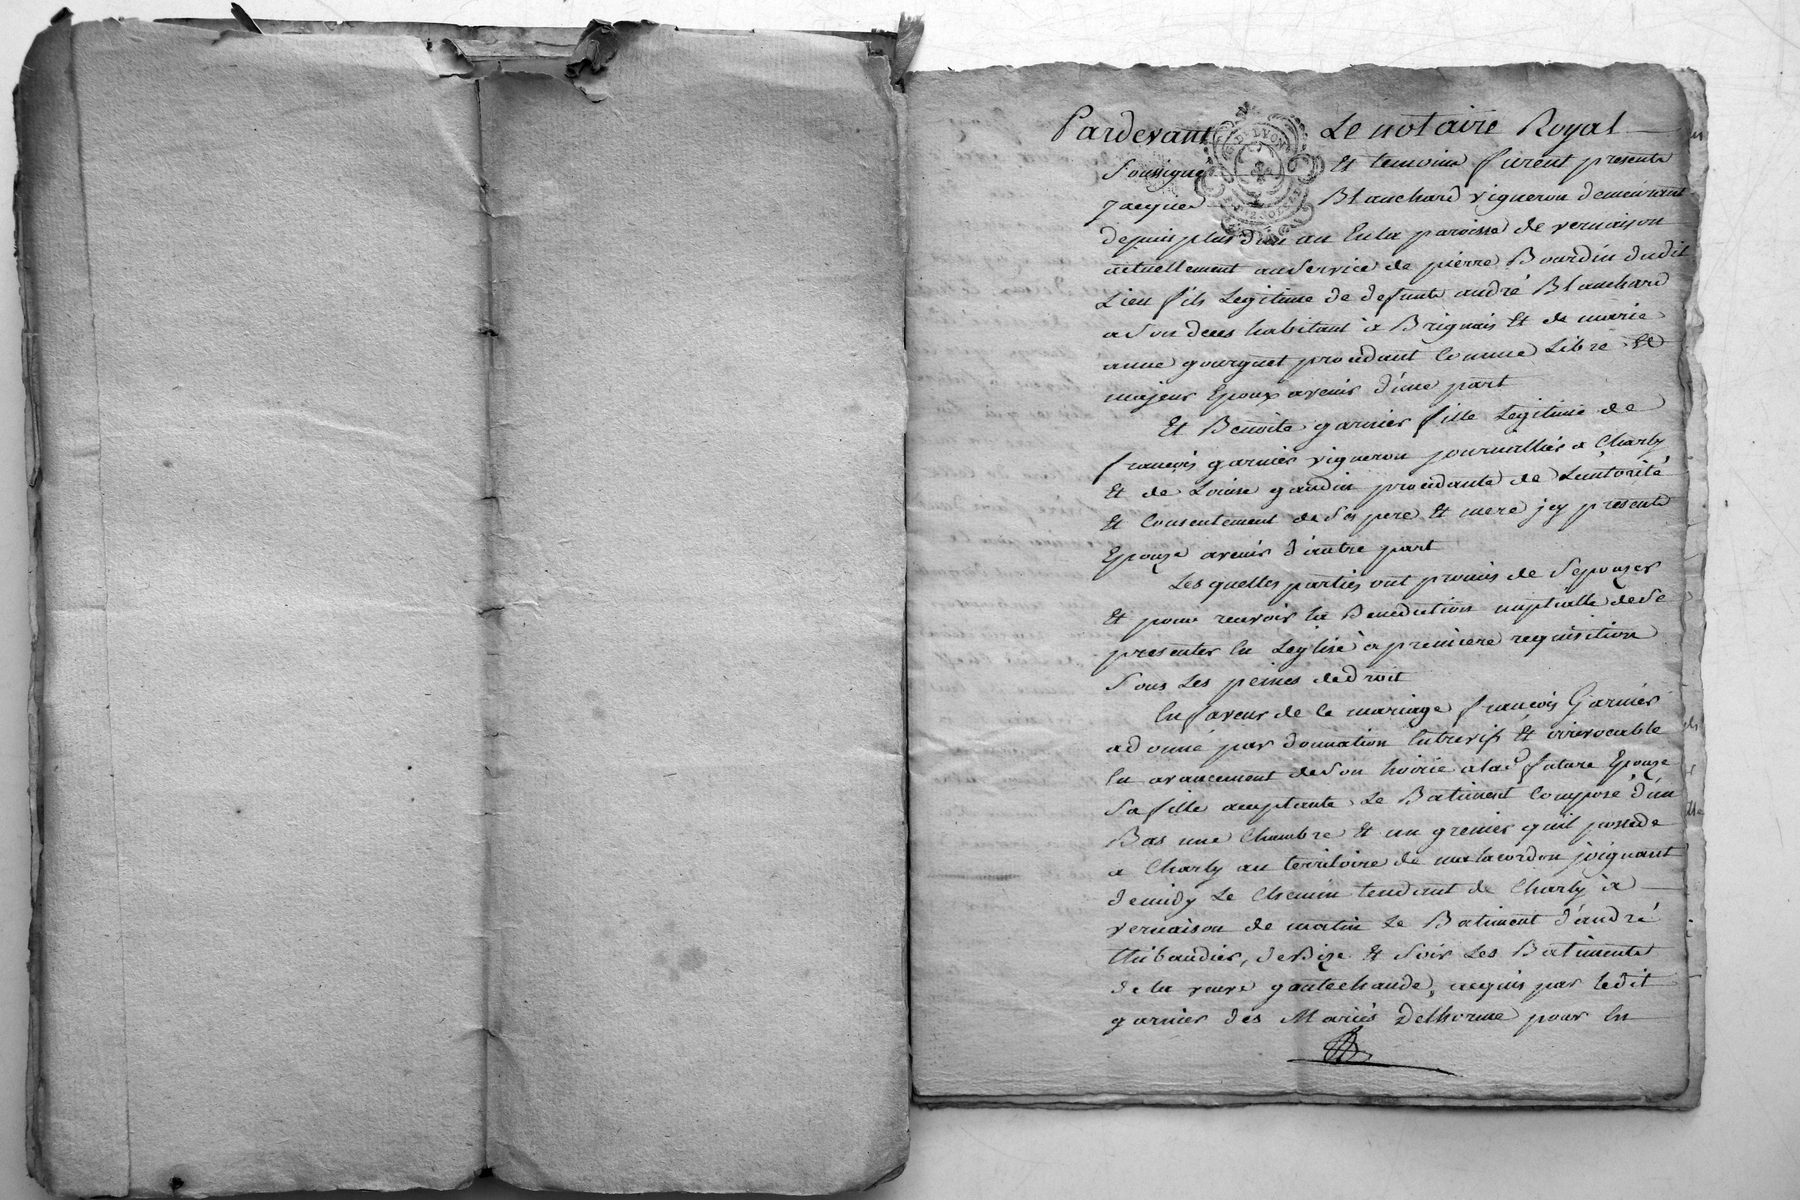 Pardevant Le notaire Royal
Soussigné Et temoins furent presents
Jacques Blanchard vigneron demeurant
depuis plus d'un an En la paroisse de vernaison
actuellement au Service de pierre Bourdin dudit
Lieu fils Legitime de defunts andré Blanchard
a Son deces habitant à Brignais Et de marie
anne gourguet procedant Comme Libre Et
majeur Epoux avenir d'une part
Et Benoite garnier fille Legitime de
françois garnier vigneron journallier a Charly
Et de Louise gaudin procedante de Lautorité
Et Consentement de Ses pere Et mere jcy presents
Epouze avenir d'autre part
Les quelles parties ont promis de Sepouzer
Et pour recevoir la Benediction nuptialle de Se
presenter En Leglise à premiere requisition
Sous Les peines de droit
En faveur de Ce mariage françois Garnier
a donné par donnation Entrevifs Et irrevocable
En avancement de Son hoirie a lad future Epouze
Sa fille acceptante Le Batiment Composé d'un
Bas une Chambre Et un grenier qu'il possede
a Charly au territoire de joignant
de midy Le Chemin tendant de Charly à
vernaison de matin Le Batiment d'andré
thibaudier, de Bize Et Soir Les Batiments
de la veuve gantechaude, acquis par ledit
garnier des Mariés Delhorme pour En